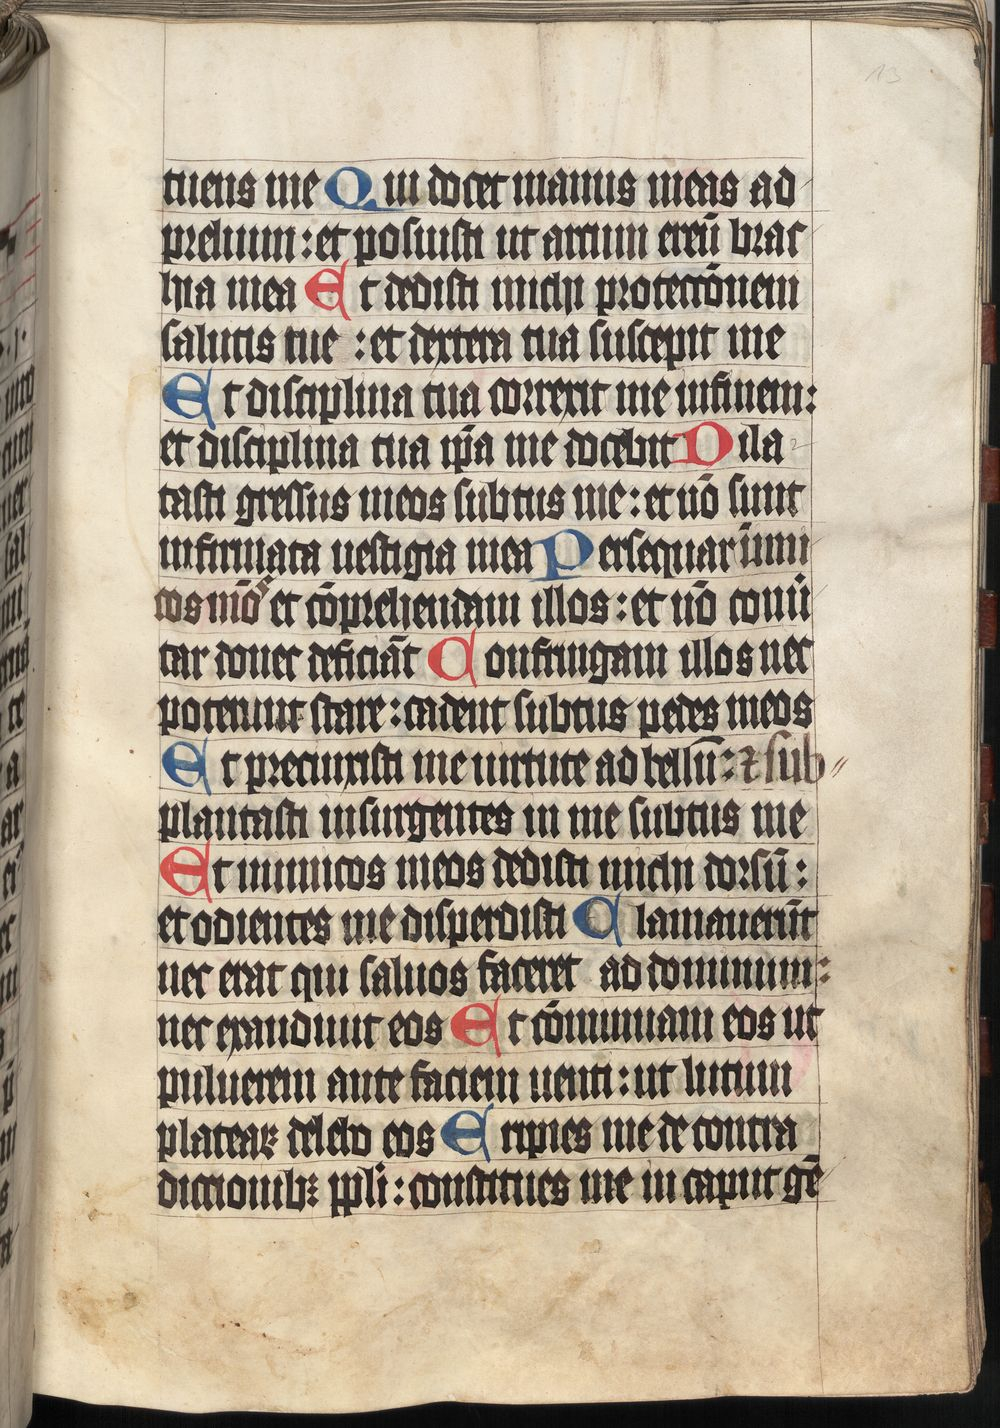 13
tuens me Qui docet manus meas ad
prelium : et posuisti ut arcum ereū brac
hia mea Et dedisti michi protectōnem
salutis tue : et dextera tua suscepit me
Et disciplina tua correxit me infinem :
et disciplina tua ip̄a me docebit Dila
tasti gressus meos subtus me : et nō sunt
infirmata uestigia mea Persequar inimi
cos meos et cōprehendam illos : et nō conū
tar donec deficiāt Confringam illos nec
poterunt stare : cadent subtus pedes meos
Et precinxisti me uirtute ad bellū : ⁊ sub
plantasti insurgentes in me subtus me
Et inimicos meos dedisti michi dorsū :
et odientes me disperdisti Clamauerūt
nec erat qui saluos faceret ad dominum :
nec exaudiuit eos Et cōminuam eos ut
puluerem ante faciem uenti : ut lutum
plateaꝝ delebo eos Eripies me de contra
dictionibꝫ ppli : constitues me in caput gē